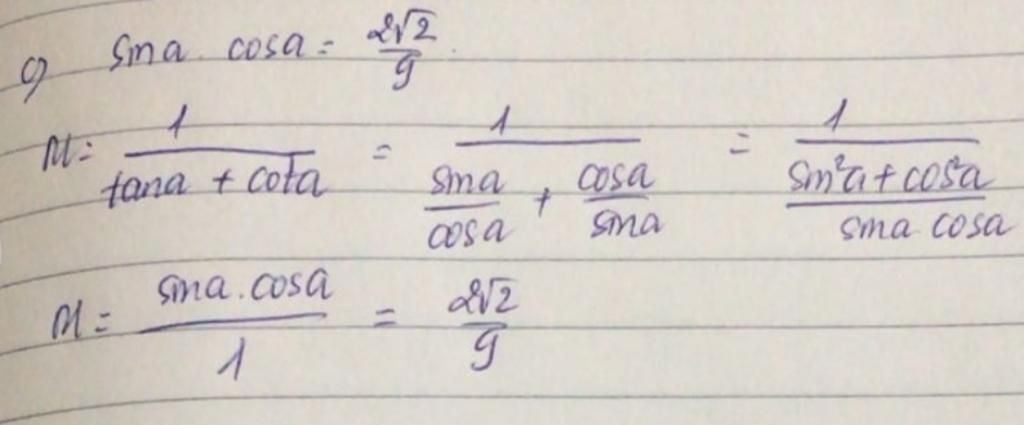 c) sina . cosa = 2√2/9.
M = 1/(tana + cota) = 1/(sina/cosa + cosa/sina) = 1/((sin²a + cos²a)/(sina cosa))
M = sina.cosa/1 = 2√2/9